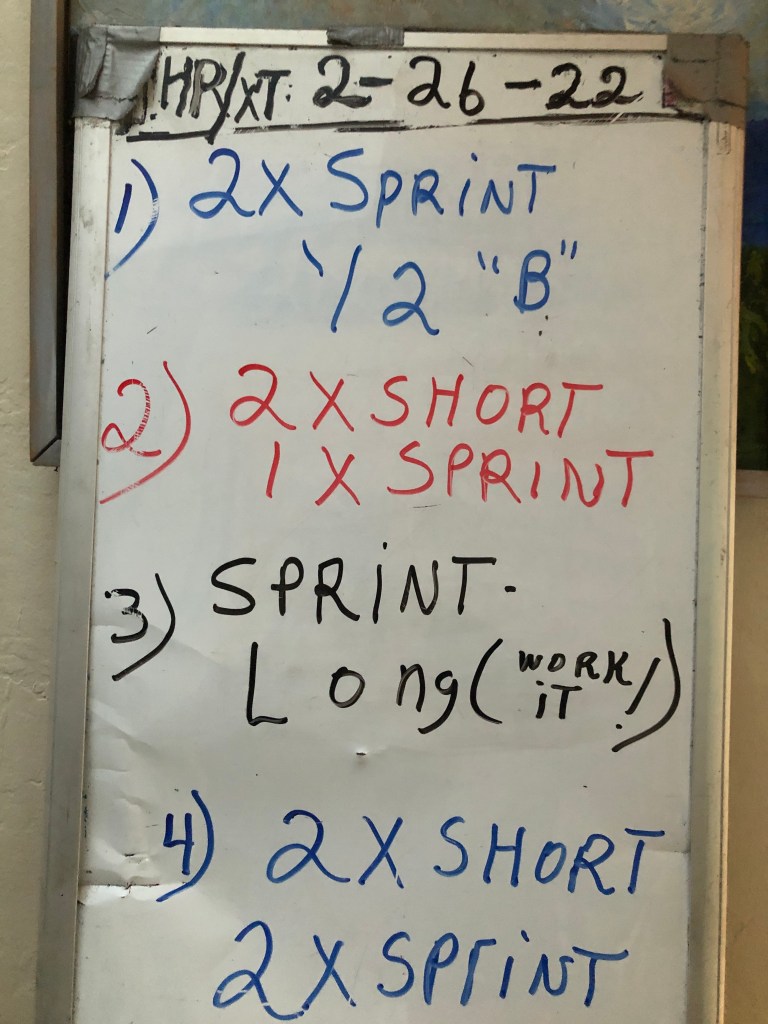 HR/XT: 2-26-22
1) 2X SPRiNT
1/2 "B"
2) 2X SHORT
1 X SPRINT
3) SPRiNT-
Long (WORK
iT!)
4) 2X SHORT
2X SPriNT